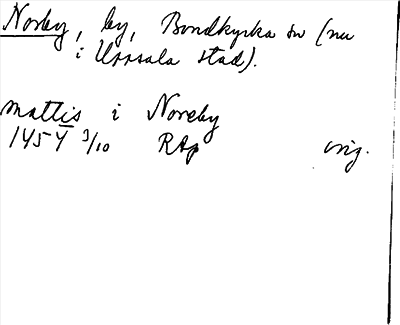 Norby, by, Bondkyrka sn (nu
i Uppsala stad).
mattis i Noreby
1454 3/10 RAp orig.